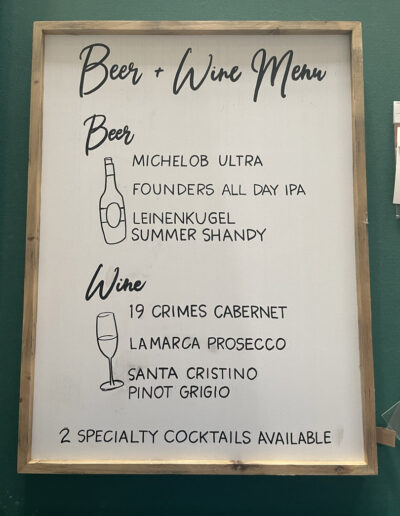 Beer + Wine Menu
Beer
MICHELOB ULTRA
FOUNDERS ALL DAY IPA
LEINENKUGEL
SUMMER SHANDY
Wine
19 CRIMES CABERNET
LAMARCA PROSECCO
SANTA CRISTINO
PINOT GRIGIO
2 SPECIALTY COCKTAILS AVAILABLE